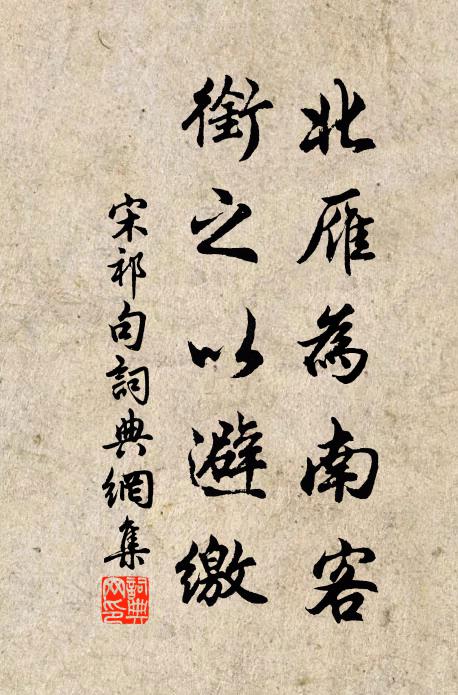 北雁為南客
銜之以避繳
宋祁句詞典網集
詞典网印